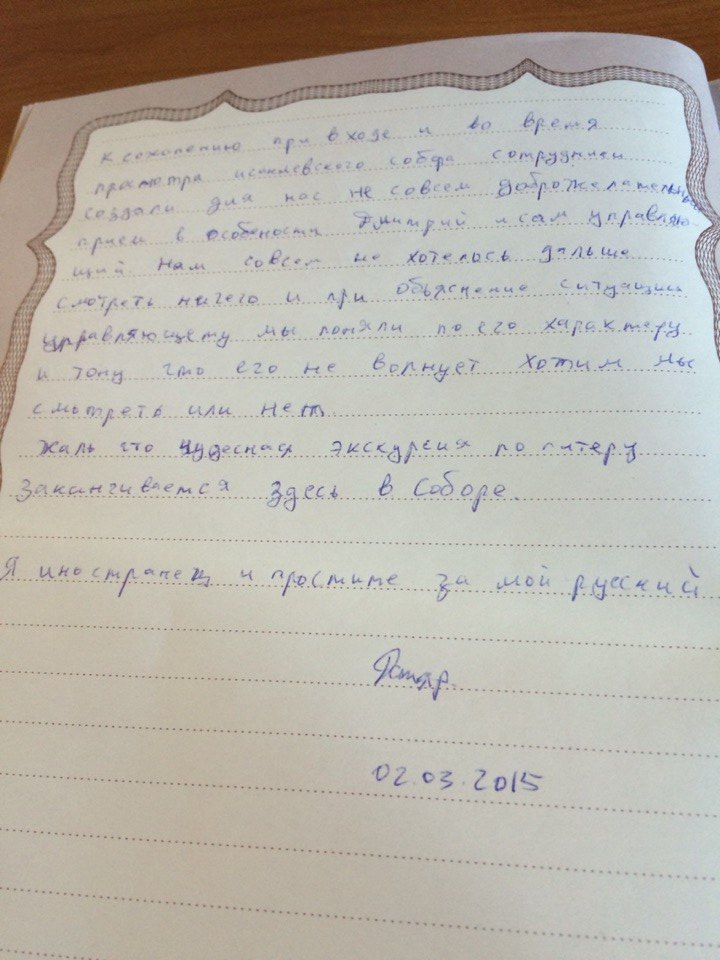 к сожелению при входе и во время
просмотра исакиевского собора сотрудники
создали для нас не совсем доброжелательны
прием в особености Дмитрий и сам управляю
щий нам совсем не хотелось дальше
смотреть ничего и при объяснение ситуации
управляющему мы поняли по его характеру
и тону что его не волнует хотим мы
смотреть или нет
жаль что чудесная экскурсия по питеру
заканчивается здесь в Соборе.
Я иностранец и простите за мой русский
02.03.2015